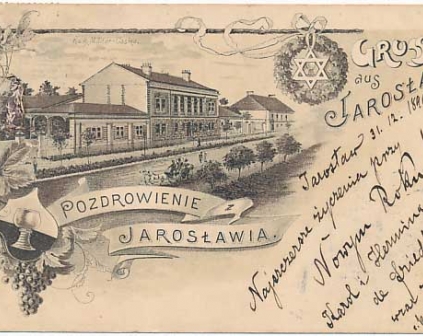 GRUSS
aus
JAROSŁA
POZDROWIENIE
Z
JAROSŁAWIA.
Jarosław 31.12.189
Najszczersze życzenia przy
Nowym Roku
Karol i Hermina
de Fries
wraz